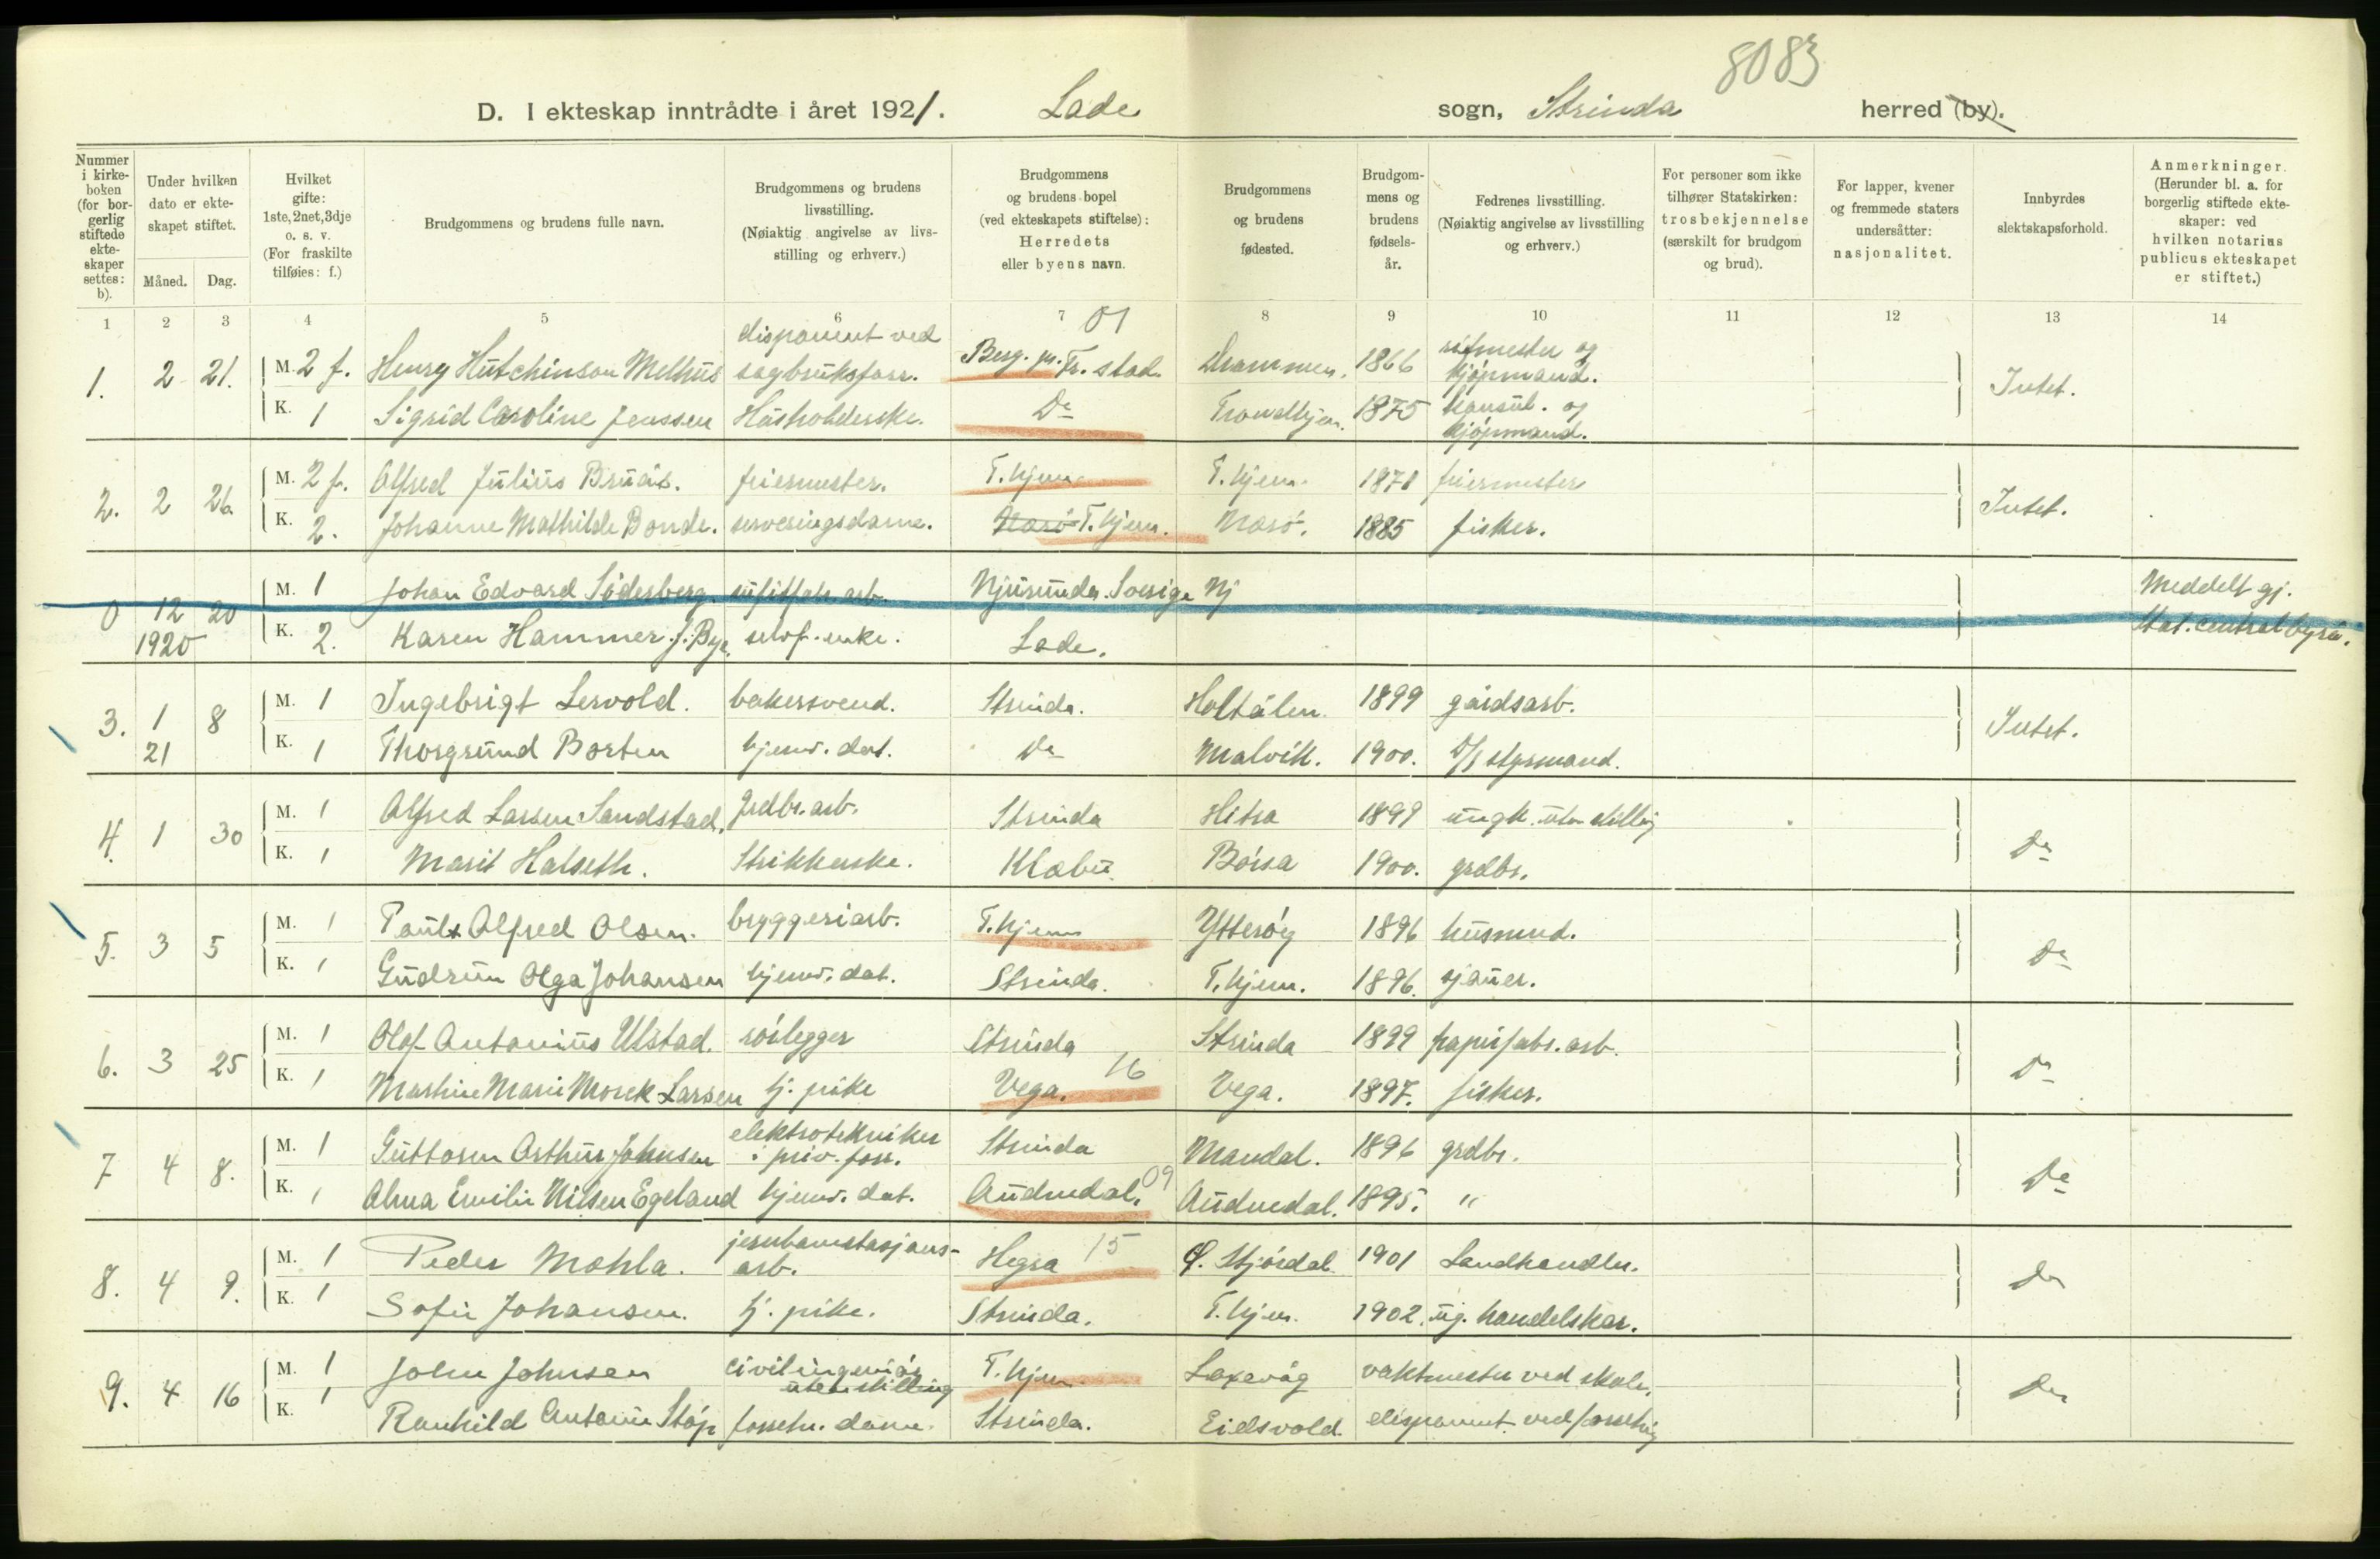 8083
D. I ekteskap inntrådte i året 1921. Lade sogn, Strinda herred (by).
Nummer i kirkeboken (for borgerlig stiftede ekteskaper settes: b).
Under hvilken dato er ekteskapet stiftet.
Måned. Dag.
Hvilket gifte: 1ste, 2net, 3dje o. s. v. (For fraskilte tilføies: f.)
Brudgommens og brudens fulle navn.
Brudgommens og brudens livsstilling. (Nøiaktig angivelse av livsstilling og erhverv.)
Brudgommens og brudens bopel (ved ekteskapets stiftelse): Herredets eller byens navn.
Brudgommens og brudens fødested.
Brudgommens og brudens fødselsår.
Fedrenes livsstilling. (Nøiaktig angivelse av livsstilling og erhverv.)
For personer som ikke tilhører Statskirken: trosbekjennelse (særskilt for brudgom og brud).
For lapper, kvener og fremmede staters undersåtter: nasjonalitet.
Innbyrdes slektskapsforhold.
Anmerkninger. (Herunder bl. a. for borgerlig stiftede ekteskaper: ved hvilken notarius publicus ekteskapet er stiftet.)
1 2 3 4 5 6 7 8 9 10 11 12 13 14
01
1. 2 21. M. 2 f. Henry Hutchinson Melhus disponent ved sagbruksforr. Berg. pr. Tr. stad. Drammen. 1866 kjøpmand. Intet.
K. 1 Sigrid Caroline Jenssen Husholderske. Do Trondhjem. 1875 konsul. og kjøpmand.
2. 2 26. M. 2 f. Alfred Julius Bruås. feiermester. T.hjem. T.hjem. 1871 feiermester Intet.
K. 2. Johanne Mathilde Bonde. serveringsdame. T.hjem. Nærö. 1885 fisker.
0 12 20 1920 M. 1 Johan Edvard Söderberg. sulfitfabr. arb. Njurunda. Sverige Nj Meddelt gj. Stat. centralbyrå.
K. 2. Karen Hammer f. Bye. selvf. enke. Lade.
3. 1 8 21 M. 1 Ingebrigt Lervold. bakersvend. Strinda. Holtålen. 1899 gårdsarb. Intet.
K. 1 Thorgrund Borten hjemv. dat. Do Malvik. 1900. D/S styrmand.
4. 1 30 M. 1 Alfred Larsen Sandstad. jrdbr. arb. Strinda Hitra 1899 ungk. uten stilling Do
K. 1 Marit Halseth. Strikkerske. Klæbu. Börsa 1900. grdbr.
5. 3 5 M. 1 Paul Alfred Olsen. bryggeriarb. T.hjem Ytteröy 1896 husmnd. Do
K. 1 Gudrun Olga Johansen hjemv. dat. Strinda. T.hjem. 1896. sjauer.
6. 3 25 M. 1 Olaf Antonius Ulstad. rörlegger Strinda Strinda 1899 papirfabr. arb. Do
K. 1 Martine Marie Morek Larsen tj. pike Vega. 16 Vega. 1897. fisker.
7 4 8. M. 1 Guttorm Arthur Johnsen elektrotekniker i priv. forr. Strinda Mandal. 1896 grdbr. Do
K. 1 Alma Emilie Nilsen Egeland hjemv. dat. Audnedal. 09 Audnedal. 1895. "
8. 4 9. M. 1 Peder Mæhla. jernbanestasjons-arb. Hegra 15 Ø. Stjördal 1901 Landhandler. Do
K. 1 Sofie Johansen. tj. pike. Strinda. T.hjem. 1902. ug. handelskar.
9. 4 16 M. 1 John Johnsen civilingeniör uten stilling T.hjem. Laxevåg vaktmester ved skole. Do
K. 1 Ranhild Antonie Stöp forretn. dame. Strinda. Eidsvold. disponent ved forretning